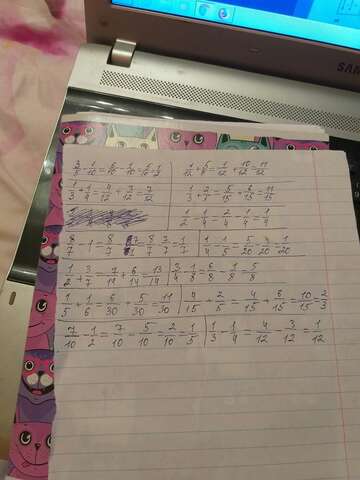 SAM
3/5 - 1/10 = 6/10 - 1/10 = 5/10 = 1/2
1/12 + 5/6 = 1/12 + 10/12 = 11/12
1/3 + 1/4 = 4/12 + 3/12 = 7/12
1/3 + 2/5 = 5/15 + 6/15 = 11/15
1/2 - 1/4 = 2/4 - 1/4 = 1/4
8/7 - 1 = 8/7
1/4 - 1/5 = 5/20 - 4/20 = 1/20
1/2 + 3/7 = 7/14 + 6/14 = 13/14
3/4 - 1/8 = 6/8 - 1/8 = 5/8
1/5 + 1/6 = 6/30 + 5/30 = 11/30
4/15 + 2/5 = 4/15 + 6/15 = 10/15 = 2/3
7/10 - 1/2 = 7/10 - 5/10 = 2/10 = 1/5
1/3 - 1/4 = 4/12 - 3/12 = 1/12